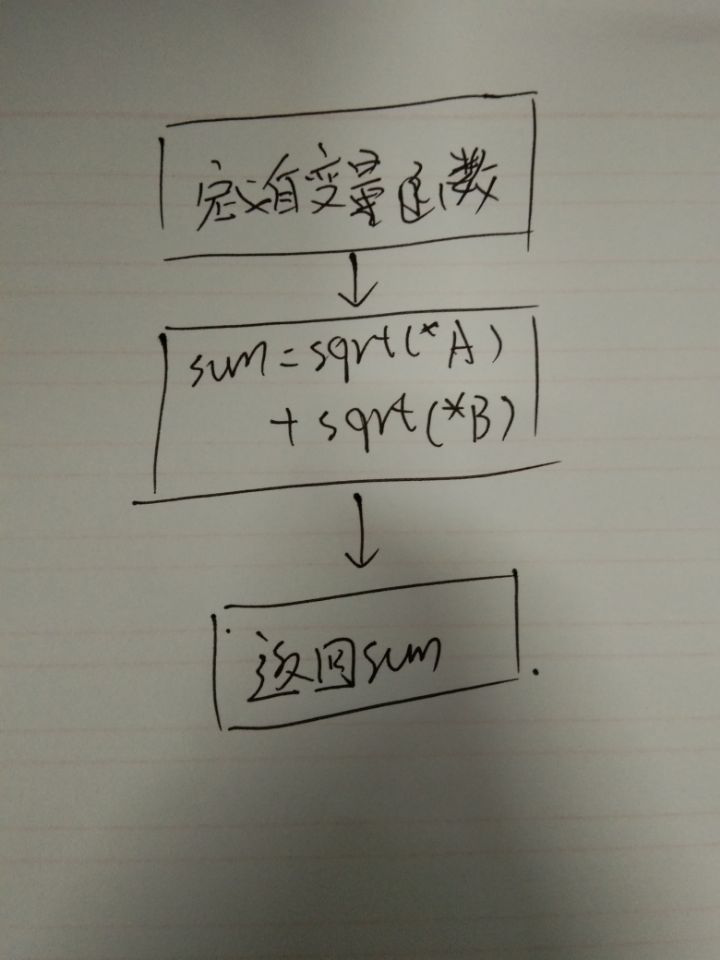 定义自变量函数
sum=sqrt(*A)
+sqrt(*B)
返回sum